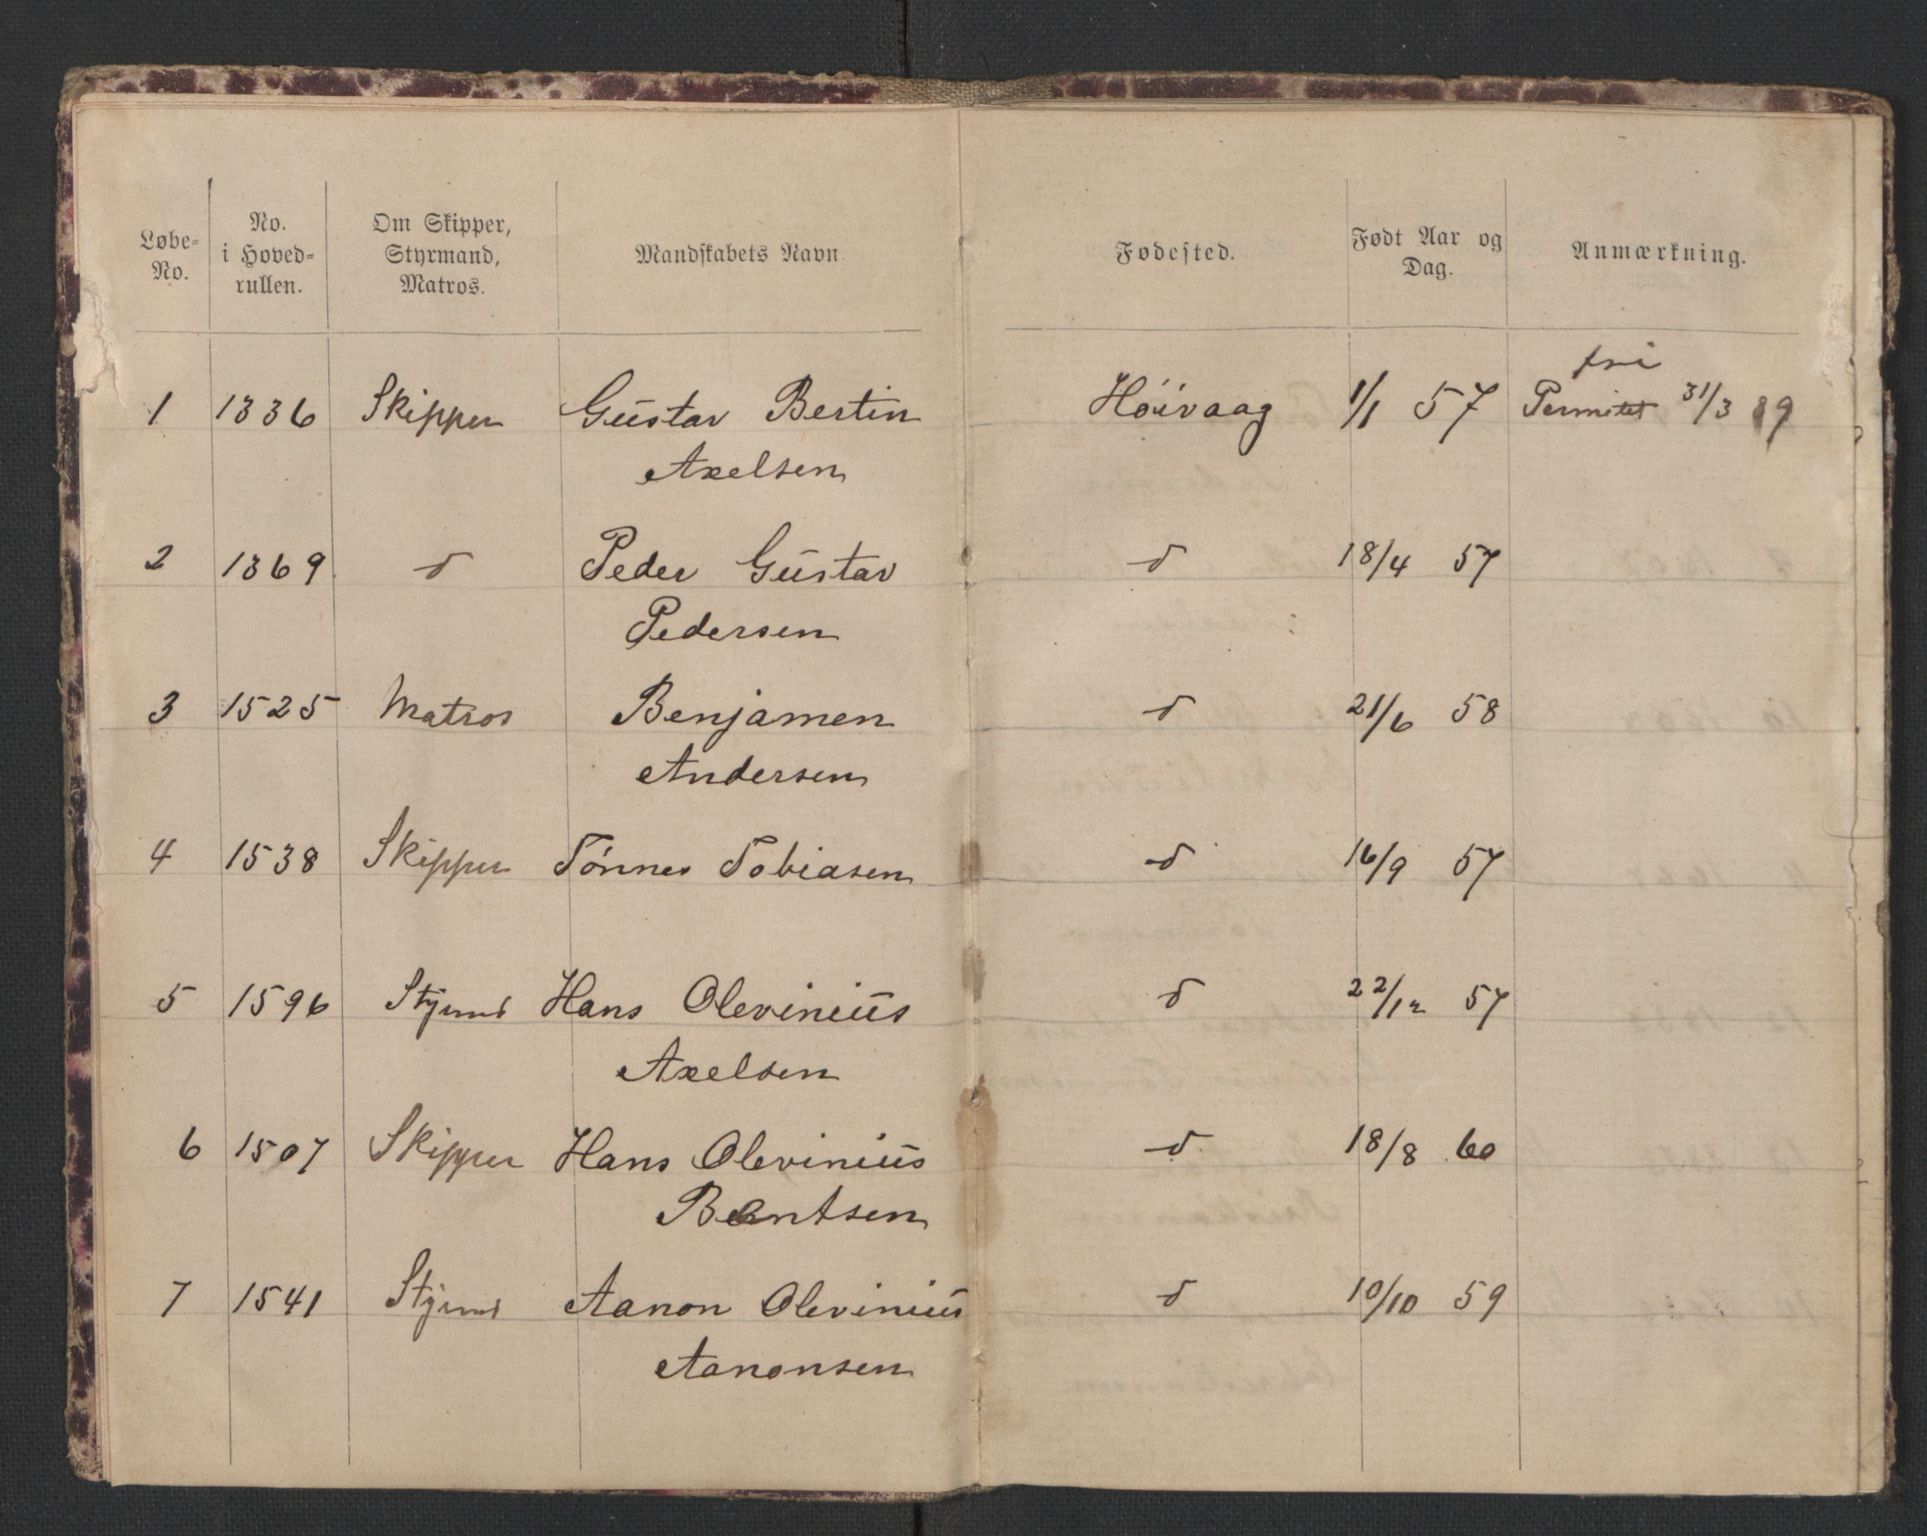 Løbe-No. | No. i Hoved-rullen. | Om Skipper, Styrmand, Matros. | Mandskabets Navn. | Fødested. | Født Aar og Dag. | Anmærkning.
fri
1 1336 Skipper Gustav Bertin Høivaag 1/1 57 Permitet 31/3 89
Axelsen
2 1369 d Peder Gustav d 18/4 57
Pedersen
3 1525 Matros Benjamen d 21/6 58
Andersen
4 1538 Skipper Tønnes Tobiasen d 16/9 57
5 1596 Stymd Hans Olevinius d 22/12 57
Axelsen
6 1507 Skipper Hans Olevinius d 18/8 60
Berntsen
7 1541 Stymd Aanon Olevinius d 10/10 59
Aanonsen